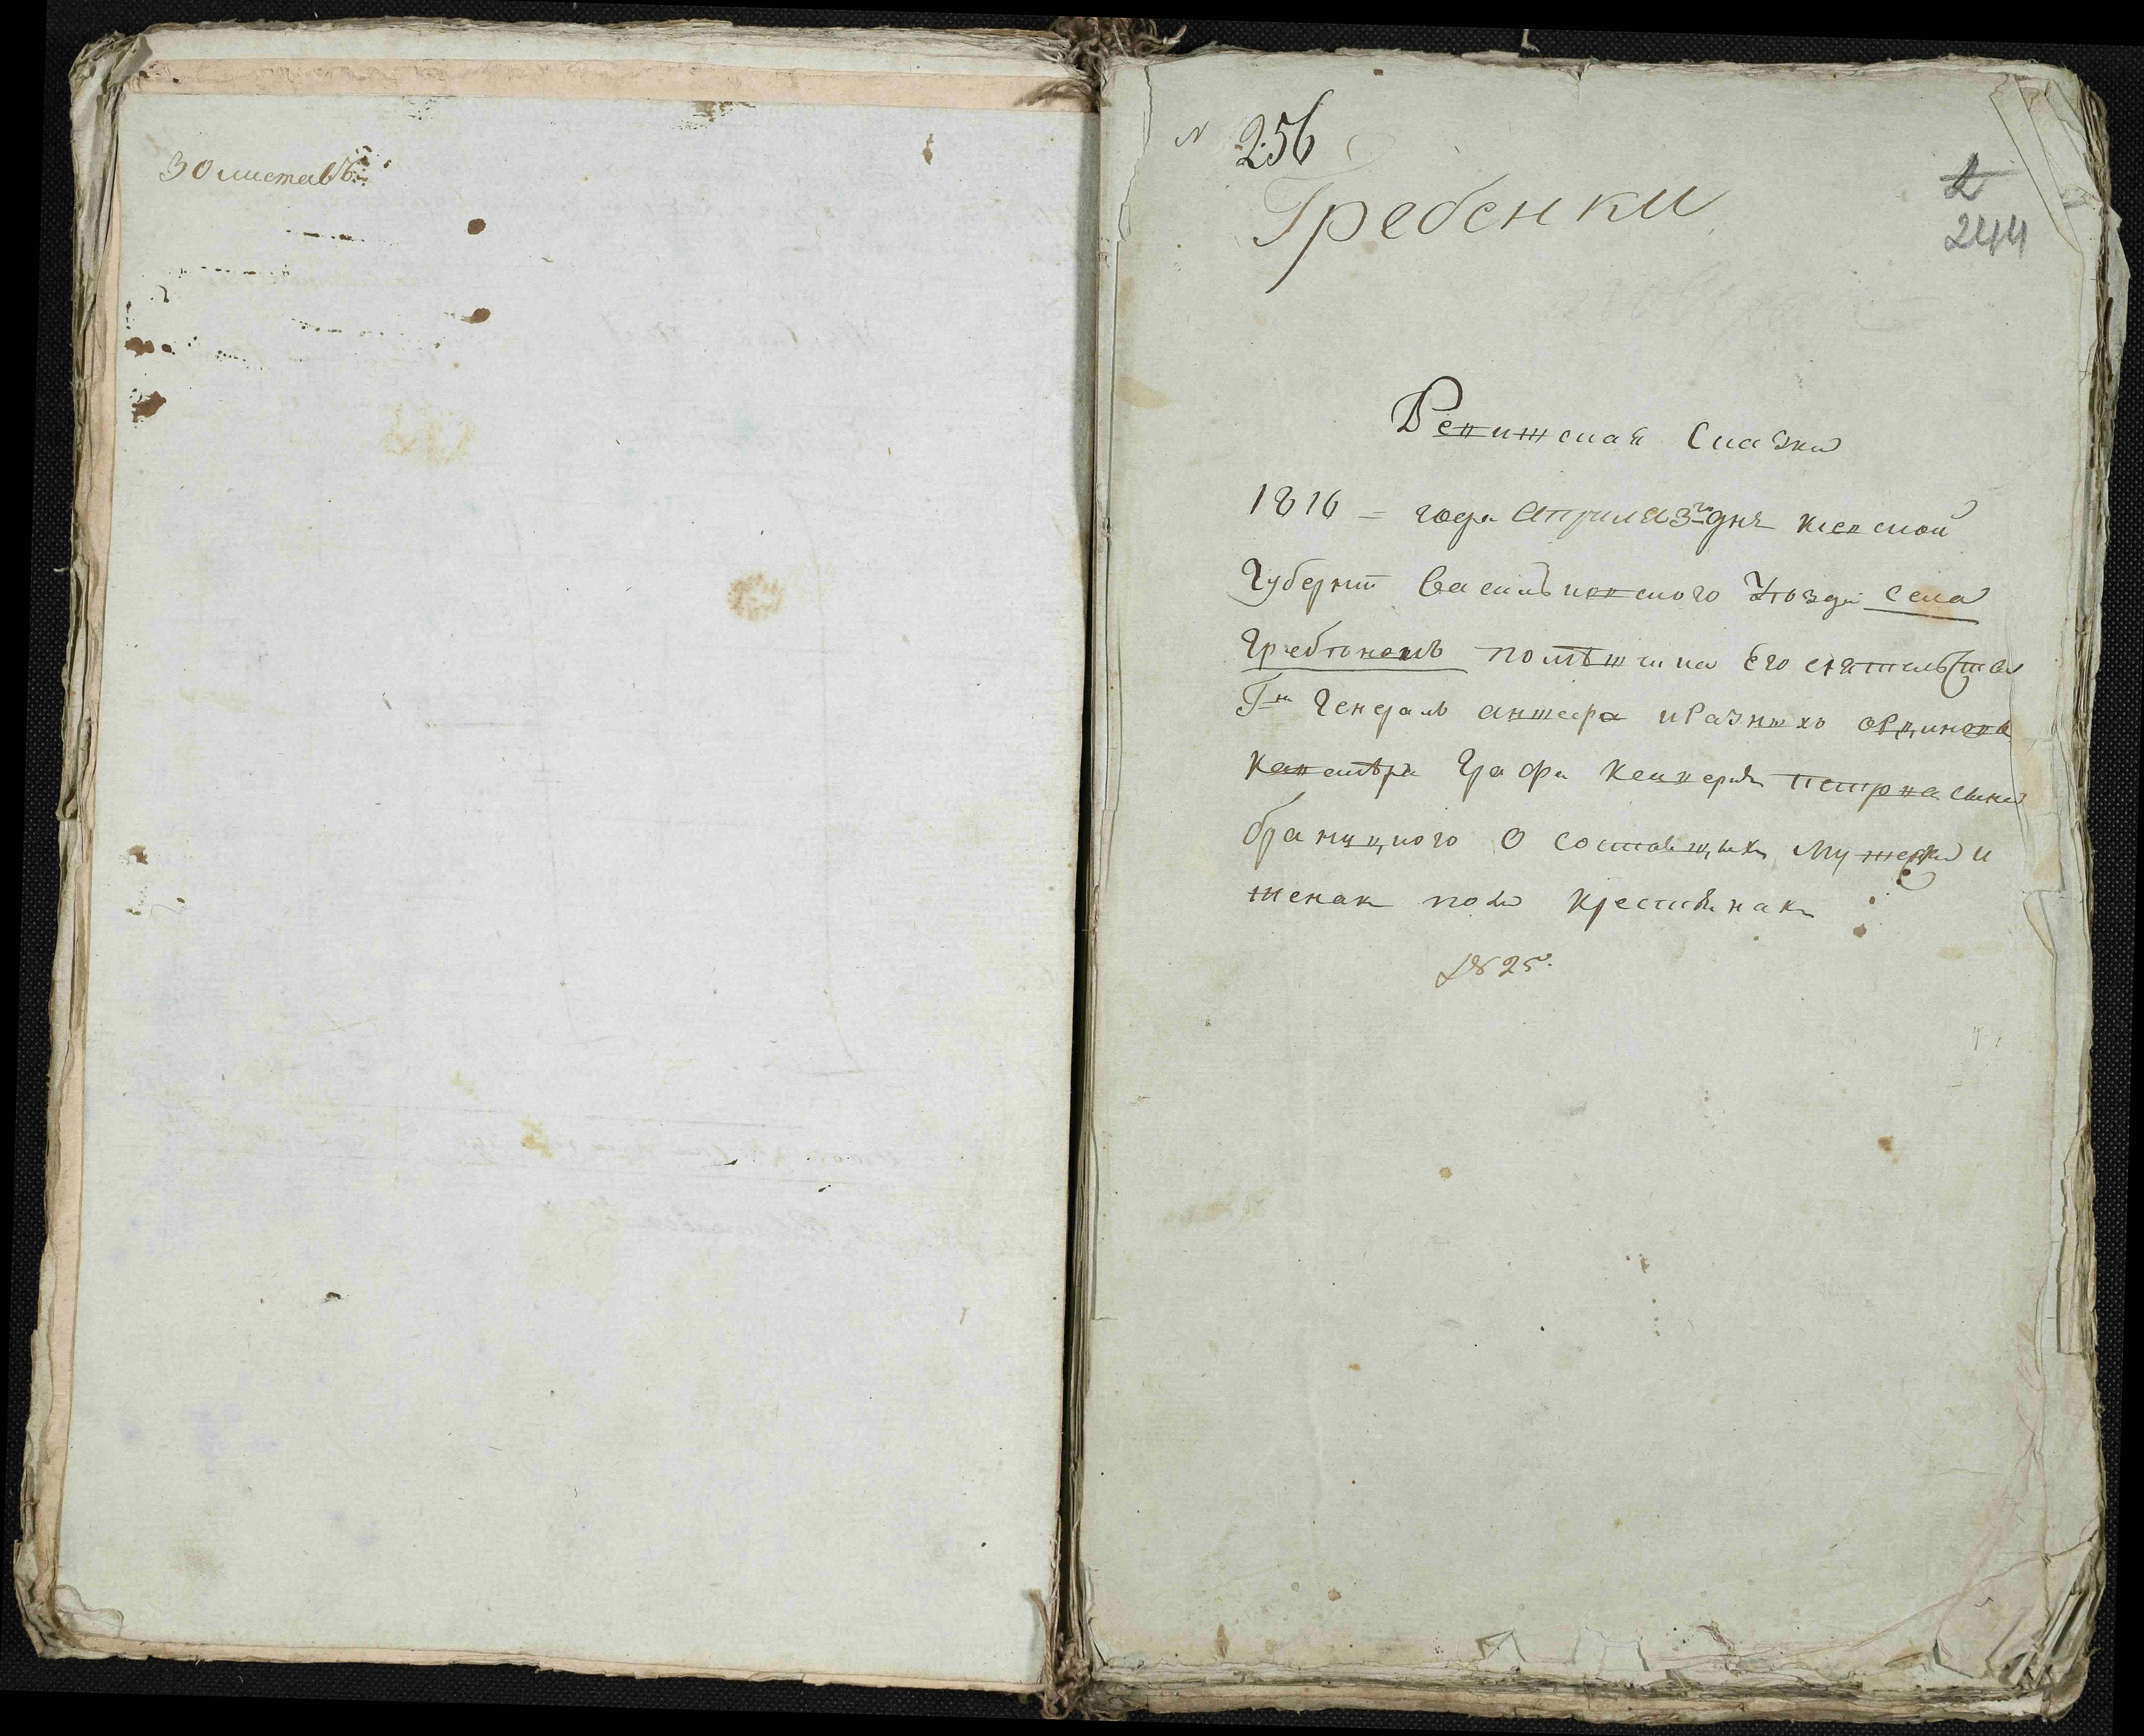 30 листавъ
№ 256
Гребенки
2
244
Ревижская Сказка
1816 = года априля 3го дня киевской
Губернiи Васильковского Уѣзда Села
Гребѣнокъ помѣщика Его сиятелства
Гна Генералъ аншефа и Разныхъ ординовъ
кавалѣра Графа Ксаверия петрва сына
браницкого О состоящихъ Мужеска и
женск пола крестьянахъ
№ 25.